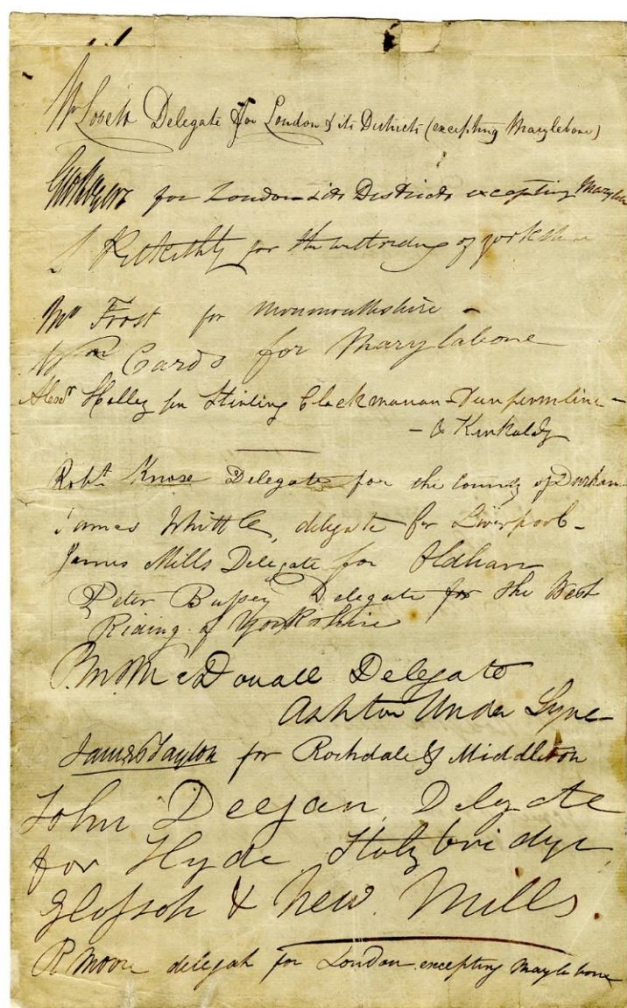 Wm Lovett Delegate for London & its Districts (excepting Marylebone)
for London & its Districts excepting Maryleb
L Pitkeithly for the westriding of yorkshire
Mr Frost for Monmouthshire -
Wm Cardo for Marylabone
Alexr Halley for Stirling Clackmanan - Dunfermline -
- & Kirkaldy
Robt Knox Delegate for the County of Durham
James Whittle, delegate for Liverpool -
James Mills Delegate for Oldham
Peter Bussey Delegate for the West
Riding of Yorkshire
P.M. McDouall Delegate
Ashton Under Lyne -
James Taylor for Rochdale & Middleton
John Deegan, Delegate
for Hyde Staly bridge
Glossop & New. Mills.
R Moore delegate for London excepting Maylebone